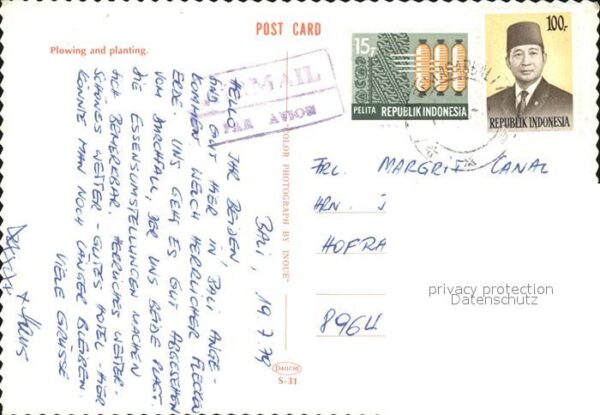 POST CARD
Plowing and planting.
AIR MAIL
PAR AVION
15r
PELITA REPUBLIK INDONESIA
100.-
REPUBLIK INDONESIA
BALI, 19.7.78
HELLO IHR BEIDEN,
SIND GUT HIER IN BALI ANGE-
KOMMEN. WELCH HERRLICHER FLECKEN
ERDE. UNS GEHT ES GUT ABGESEHEN
VOM DURCHFALL, DER UNS BEIDE PLAGT.
DIE ESSENSUMSTELLUNGEN MACHEN
SICH BEMERKBAR. HERRLICHES WETTER.
GUTES HOTEL - HIER
KÖNNTE MAN NOCH LÄNGER BLEIBEN.
VIELE GRÜSSE
+ HANS
COLOR PHOTOGRAPH BY INOUE
DAIICHI
S-31
FRL. MARGRIT CANAL
HRN. J
HOFRA
8964
privacy protection
Datenschutz